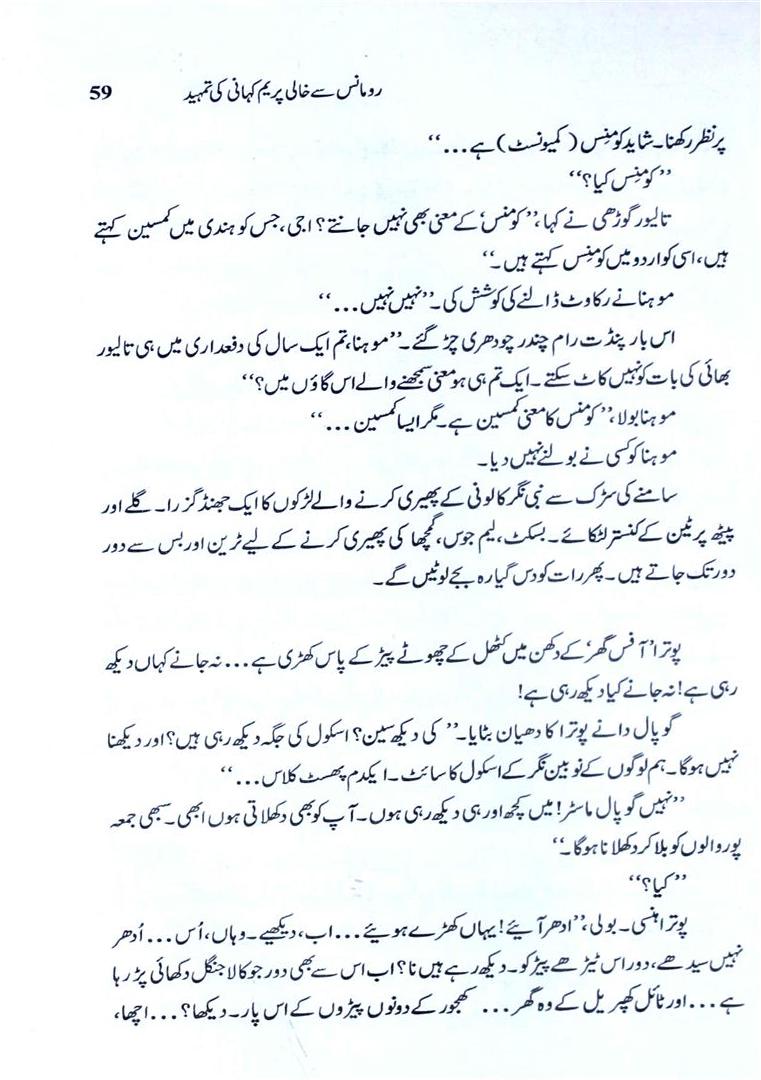 رومانس سے خالی پریم کہانی کی تمہید 59
پر نظر رکھنا۔ شاید کومنِس (کمیونسٹ) ہے...“
”کومنِس کیا؟“
تالیور گوڑھی نے کہا، ”کومنس‘ کے معنی بھی نہیں جانتے؟ اجی، جس کو ہندی میں کمسین کہتے
ہیں، اسی کو اردو میں کومنِس کہتے ہیں۔“
موہنا نے رکاوٹ ڈالنے کی کوشش کی۔ ”نہیں نہیں...“
اس بار پنڈت رام چندر چودھری چڑ گئے۔ ”موہنا، تم ایک سال کی دفعداری میں ہی تالیور
بھائی کی بات کو نہیں کاٹ سکتے۔ ایک تم ہی ہو معنی سمجھنے والے اس گاؤں میں؟“
موہنا بولا، ”کومنس کا معنی کمسین ہے۔ مگر ایسا کمسین...“
موہنا کو کسی نے بولنے نہیں دیا۔
سامنے کی سڑک سے نبی نگر کالونی کے پھیری کرنے والے لڑکوں کا ایک جھنڈ گزرا۔ گلے اور
پیٹھ پر ٹین کے کنستر لٹکائے۔ بسکٹ، لیم جوس، گمچھا کی پھیری کرنے کے لیے ٹرین اور بس سے دور
دور تک جاتے ہیں۔ پھر رات کو دس گیارہ بجے لوٹیں گے۔
پوترا ’آفس گھر‘ کے دکھن میں کٹھل کے چھوٹے پیڑ کے پاس کھڑی ہے... نہ جانے کہاں دیکھ
رہی ہے! نہ جانے کیا دیکھ رہی ہے!
گوپال دا نے پوترا کا دھیان بٹایا۔ ”کی دیکھ سین؟ اسکول کی جگہ دیکھ رہی ہیں؟ اور دیکھنا
نہیں ہوگا۔ ہم لوگوں کے نوبین نگر کے اسکول کا سائٹ۔ ایکدم پھسٹ کلاس...“
”نہیں گوپال ماسٹر! میں کچھ اور ہی دیکھ رہی ہوں۔ آپ کو بھی دکھلاتی ہوں ابھی۔ سبھی جمعہ
پور والوں کو بلا کر دکھلانا ہوگا۔“
”کیا؟“
پوترا ہنسی۔ بولی، ”ادھر آیئے! یہاں کھڑے ہویئے... اب، دیکھیے۔ وہاں، اُس... اُدھر
نہیں سیدھے، دور اس ٹیڑھے پیڑ کو۔ دیکھ رہے ہیں نا؟ اب اس سے بھی دور جو کالا جنگل دکھائی پڑ رہا
ہے... اور ٹائل کھپریل کے وہ گھر... کھجور کے دونوں پیڑوں کے اس پار۔ دیکھا؟... اچھا،